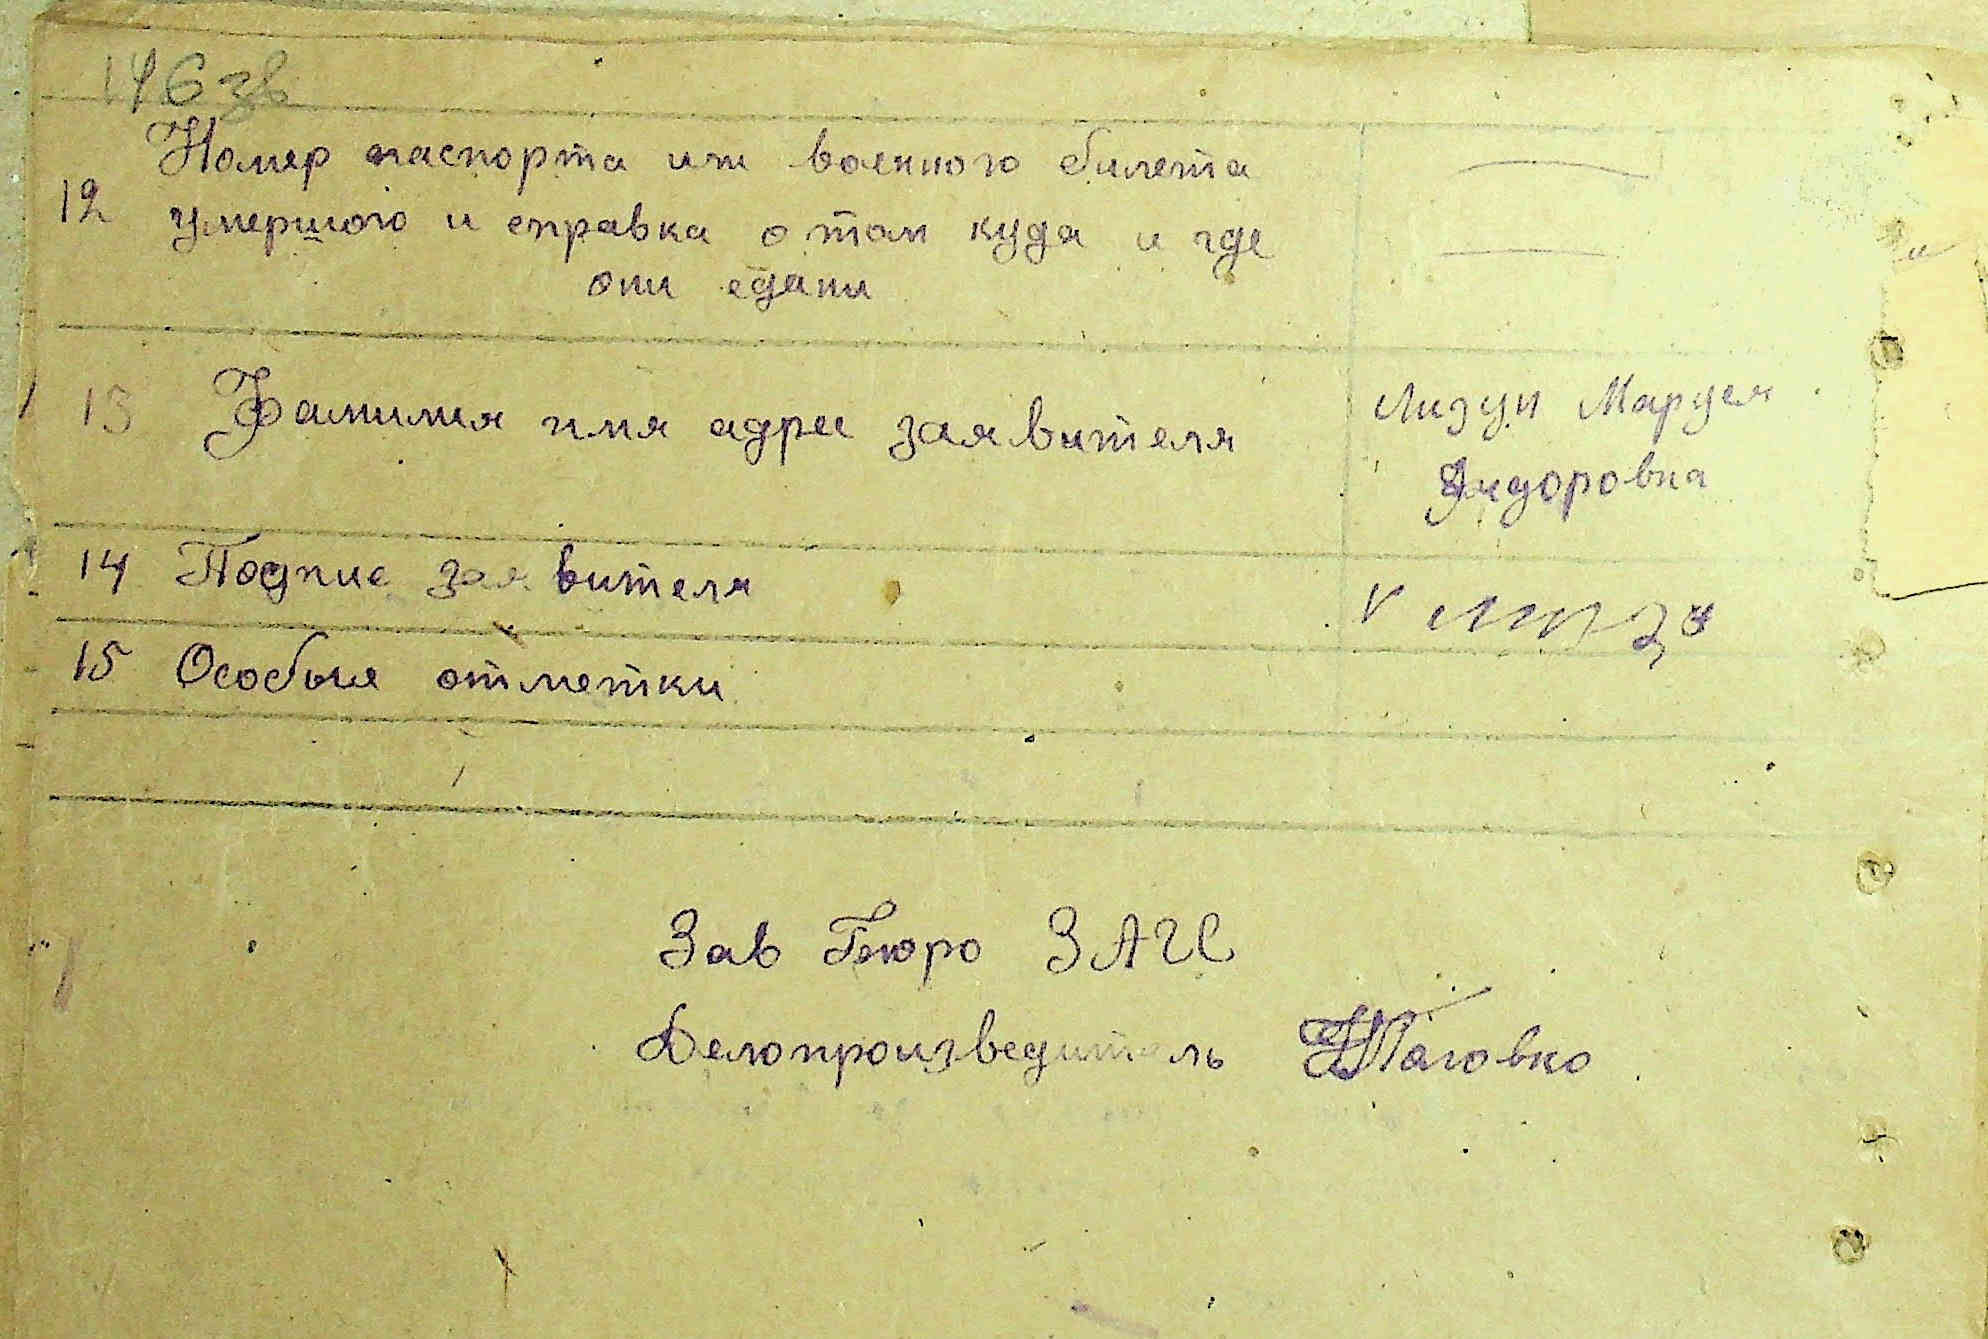 146 зв
Номер паспорта или военного билета
12 умершого и справка о том куда и где
они сдани
13 Фамилия имя адрес заявителя
Лизун Маруся
14 Подпис заявителя
15 Особые отметки
Зав Бюро ЗАГС
Делопроизведитель